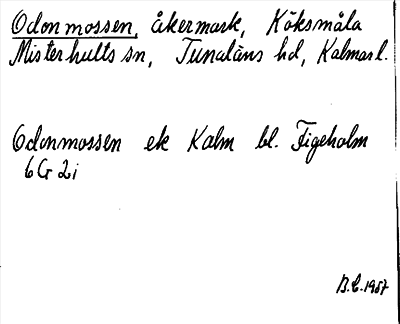 Odonmossen, åkermark, Köksmåla
Misterhults sn, Tunaläns hd, Kalmar l.
Odonmossen ek Kalm bl. Figeholm
6G 2i
B.E. 1957